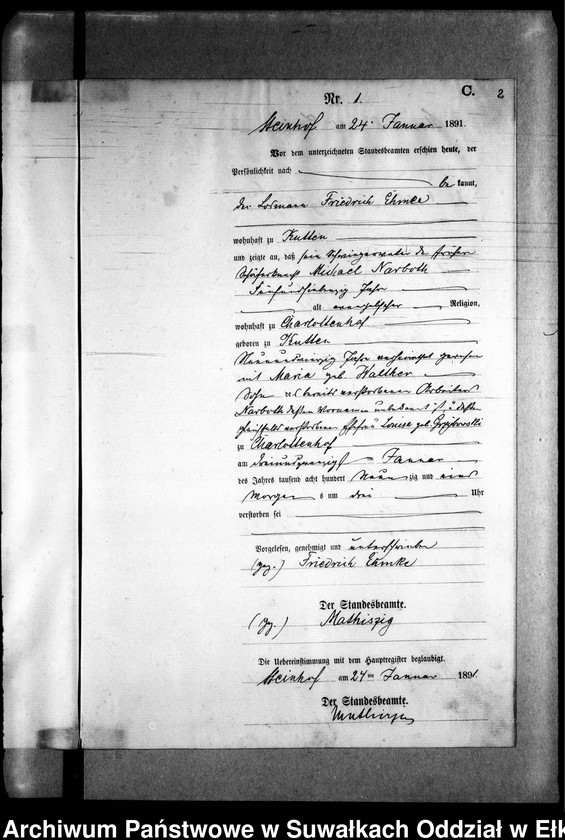 C. 2
Nr. 1.
Steinhof am 24. Januar 1891.
Vor dem unterzeichneten Standesbeamten erschien heute, der
Persönlichkeit nach
be kannt,
der Losmann Friedrich Ehmke
wohnhaft zu Kutten
und zeigte an, daß sein Schwiegervater der frühere
Michael Narboth
Fünfundsiebenzig Jahr
alt evangelischer Religion,
wohnhaft zu Charlottenhof
geboren zu Kutten
Jahre verheirathet gewesen
mit Maria geb. Walther
Sohn des bereits verstorbenen Arbeiters
Narboth dessen Vorname unbekannt ist, u. dessen
gleichfalls verstorbene Ehefrau Louise geb.
zu Charlottenhof
am dreiundzwanzigst Januar
des Jahres tausend acht hundert Neun zig und eins
Morgens um drei Uhr
verstorben sei
Vorgelesen, genehmigt und unterschrieben
(gez.) Friedrich Ehmke
Der Standesbeamte.
(gz.) Mathiszig
Die Uebereinstimmung mit dem Hauptregister beglaubigt.
Steinhof am 24ten Januar 1891.
Der Standesbeamte.
Archiwum Państwowe w Suwałkach Oddział w Ełk